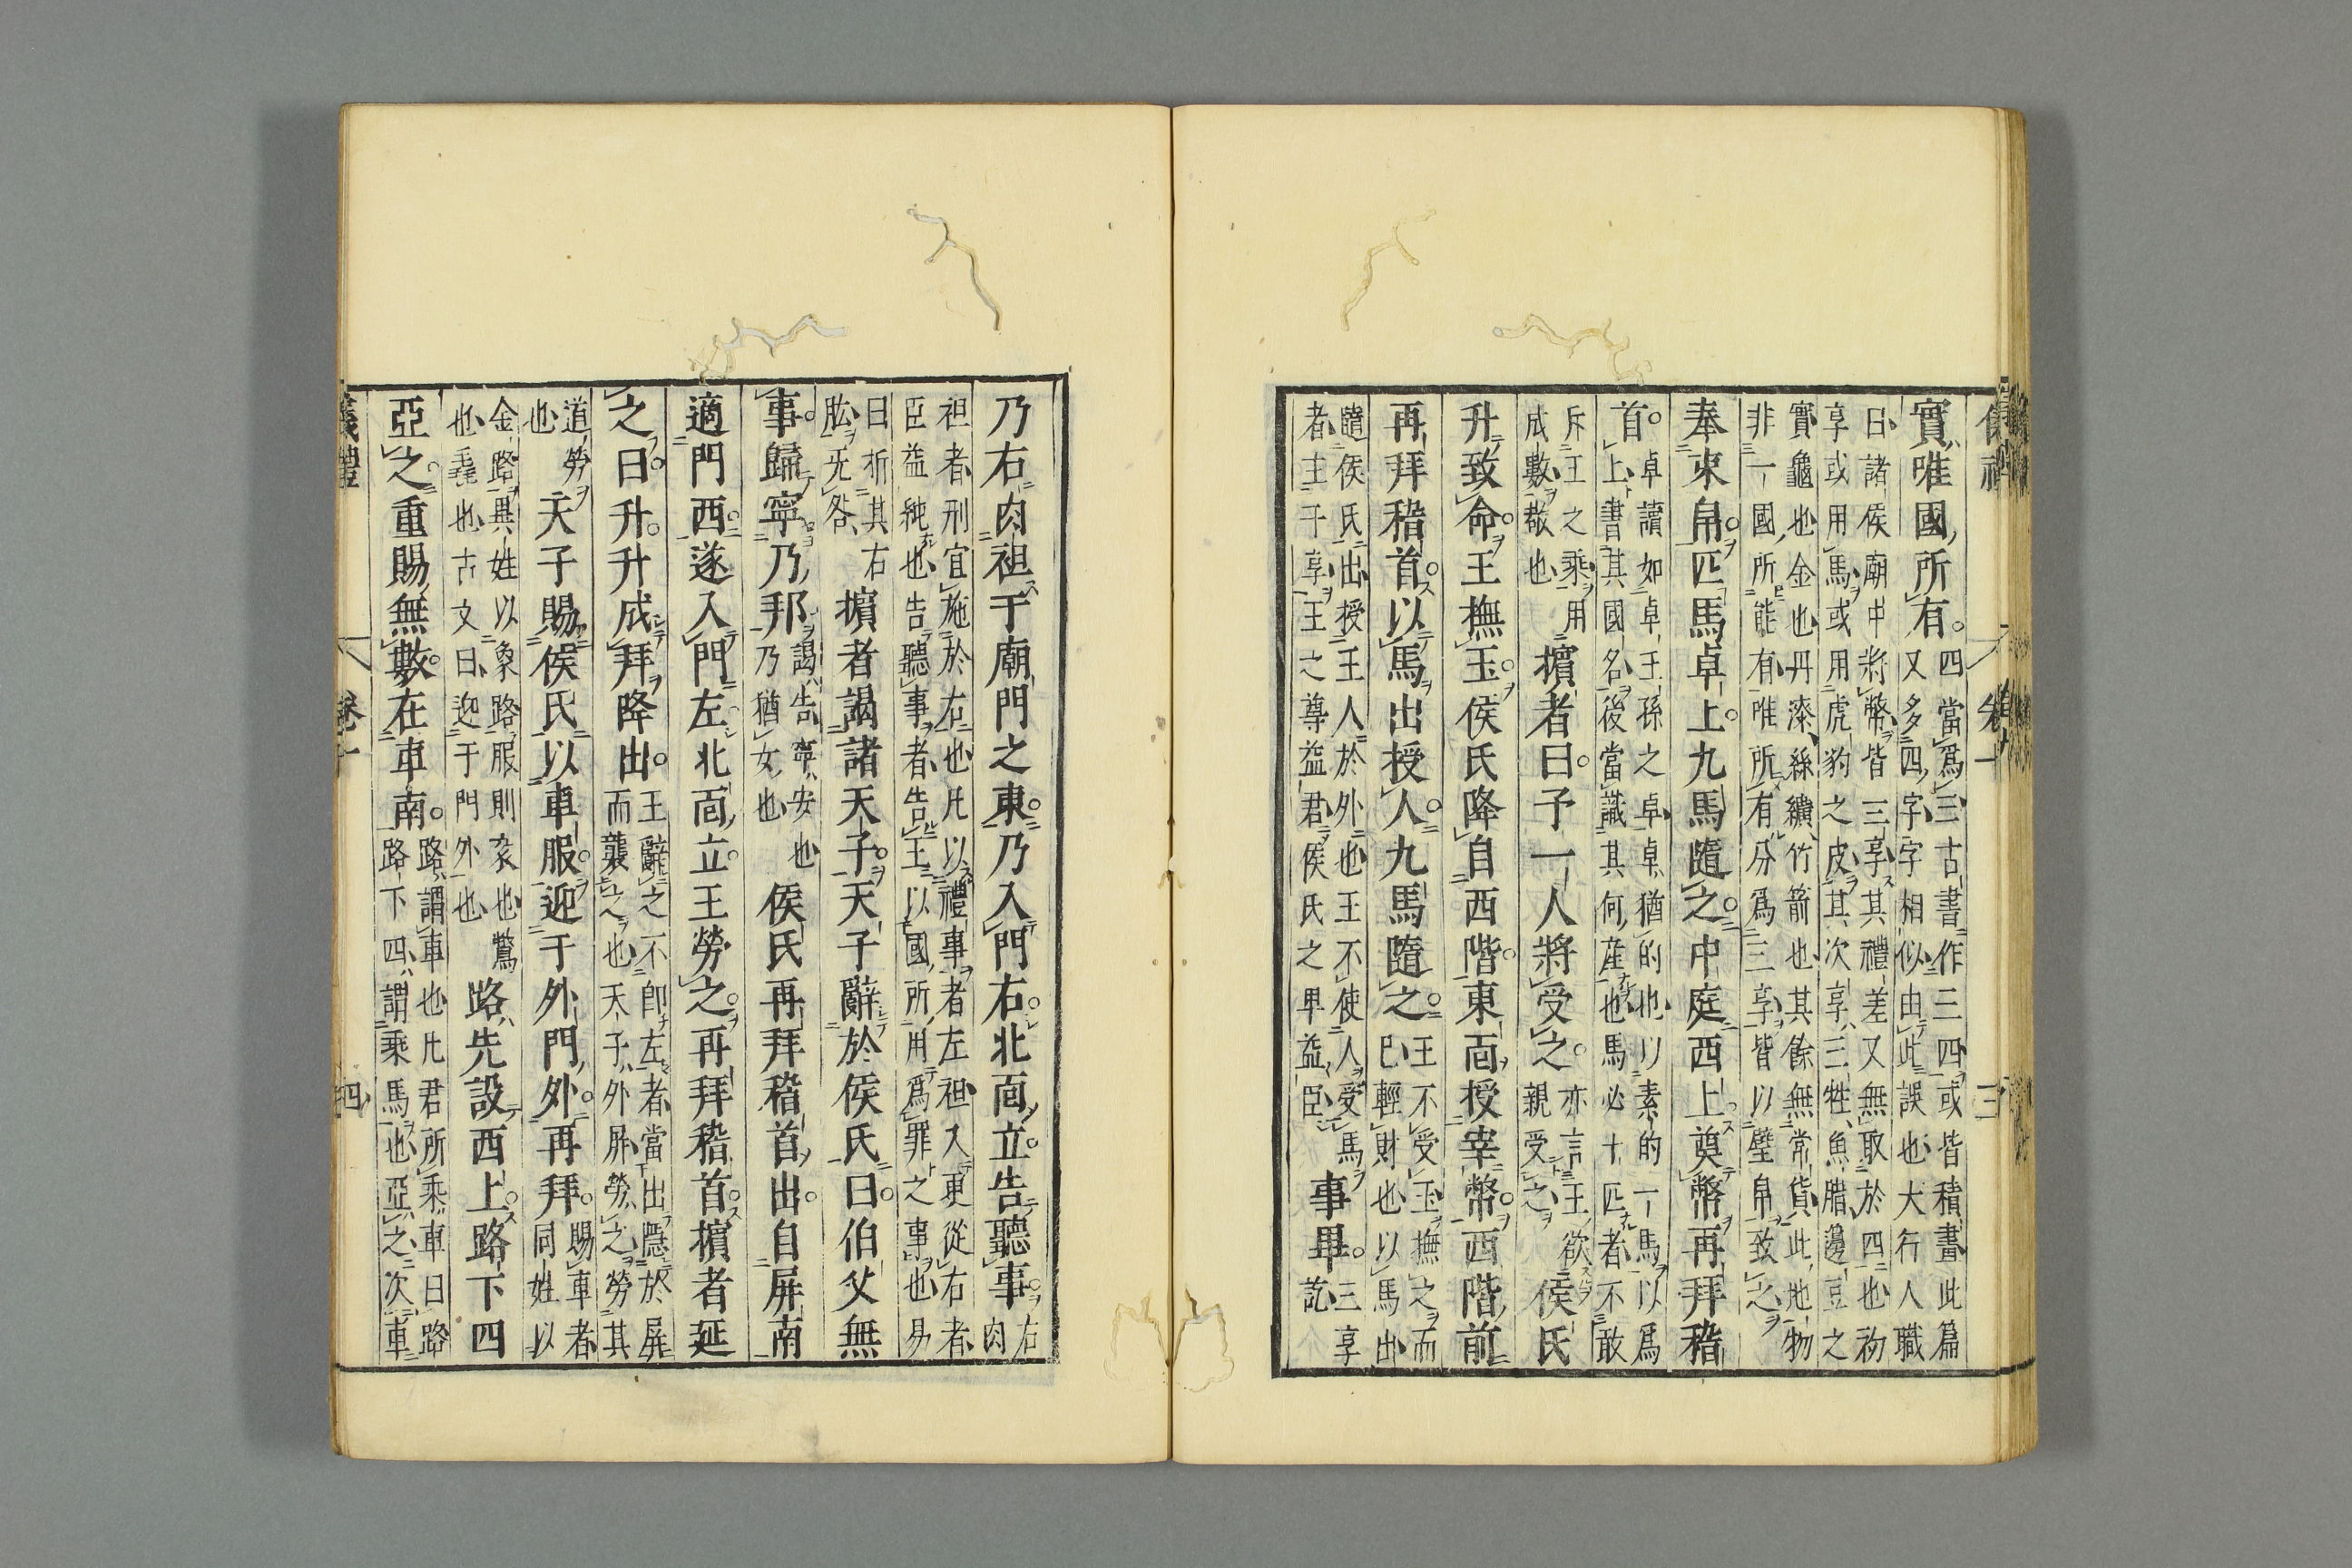 實唯國所有四當爲三古書作三四或皆積畫此篇
又多四字字相似由此誤也大行人職
曰諸侯廟中將幣皆三享其禮差又無取於四也初
享或用馬或用虎豹之皮其次享三牲魚腊籩豆之
實龜也金也丹漆絲纊竹箭也其餘無常貨此地物
非一國所能有唯所有分爲三享皆以璧帛致之
奉束帛匹馬卓上九馬隨之中庭西上奠幣再拜稽
首卓讀如卓王孫之卓卓猶的也以素的一馬以爲
上書其國名後當識其何産也馬必十匹者不敢
斥王之乘用
成數敬也
擯者曰予一人將受之亦言王欲
親受之
侯氏
升致命王撫玉侯氏降自西階東面授宰幣西階前
再拜稽首以馬出授人九馬隨之王不受玉撫之而
已輕財也以馬出
隨侯氏出授王人於外也王不使人受馬
者主于享王之尊益君侯氏之卑益臣
事畢三享
訖
乃右肉袒于廟門之東乃入門右北面立告聽事右
肉
袒者刑宜施於右也凡以禮事者左袒入更從右者
臣益純也告聽事者告王以國所用爲罪之事也易
曰折其右
肱无咎
擯者謁諸天子天子辭於侯氏曰伯父無
事歸寧乃邦謁告寧安也
乃猶女也
侯氏再拜稽首出自屏南
適門西遂入門左北面立王勞之再拜稽首擯者延
之曰升升成拜降出王辭之不卽左者當出隱於屏
而襲之也天子外屏勞之勞其
道勞
也
天子賜侯氏以車服迎于外門外再拜賜車者
同姓以
金路異姓以象路服則衮也鷩
也毳也古文曰迎于門外也
路先設西上路下四
亞之重賜無數在車南路謂車也凡君所乘車曰路
路下四謂乘馬也亞之次車
儀禮 卷十 四